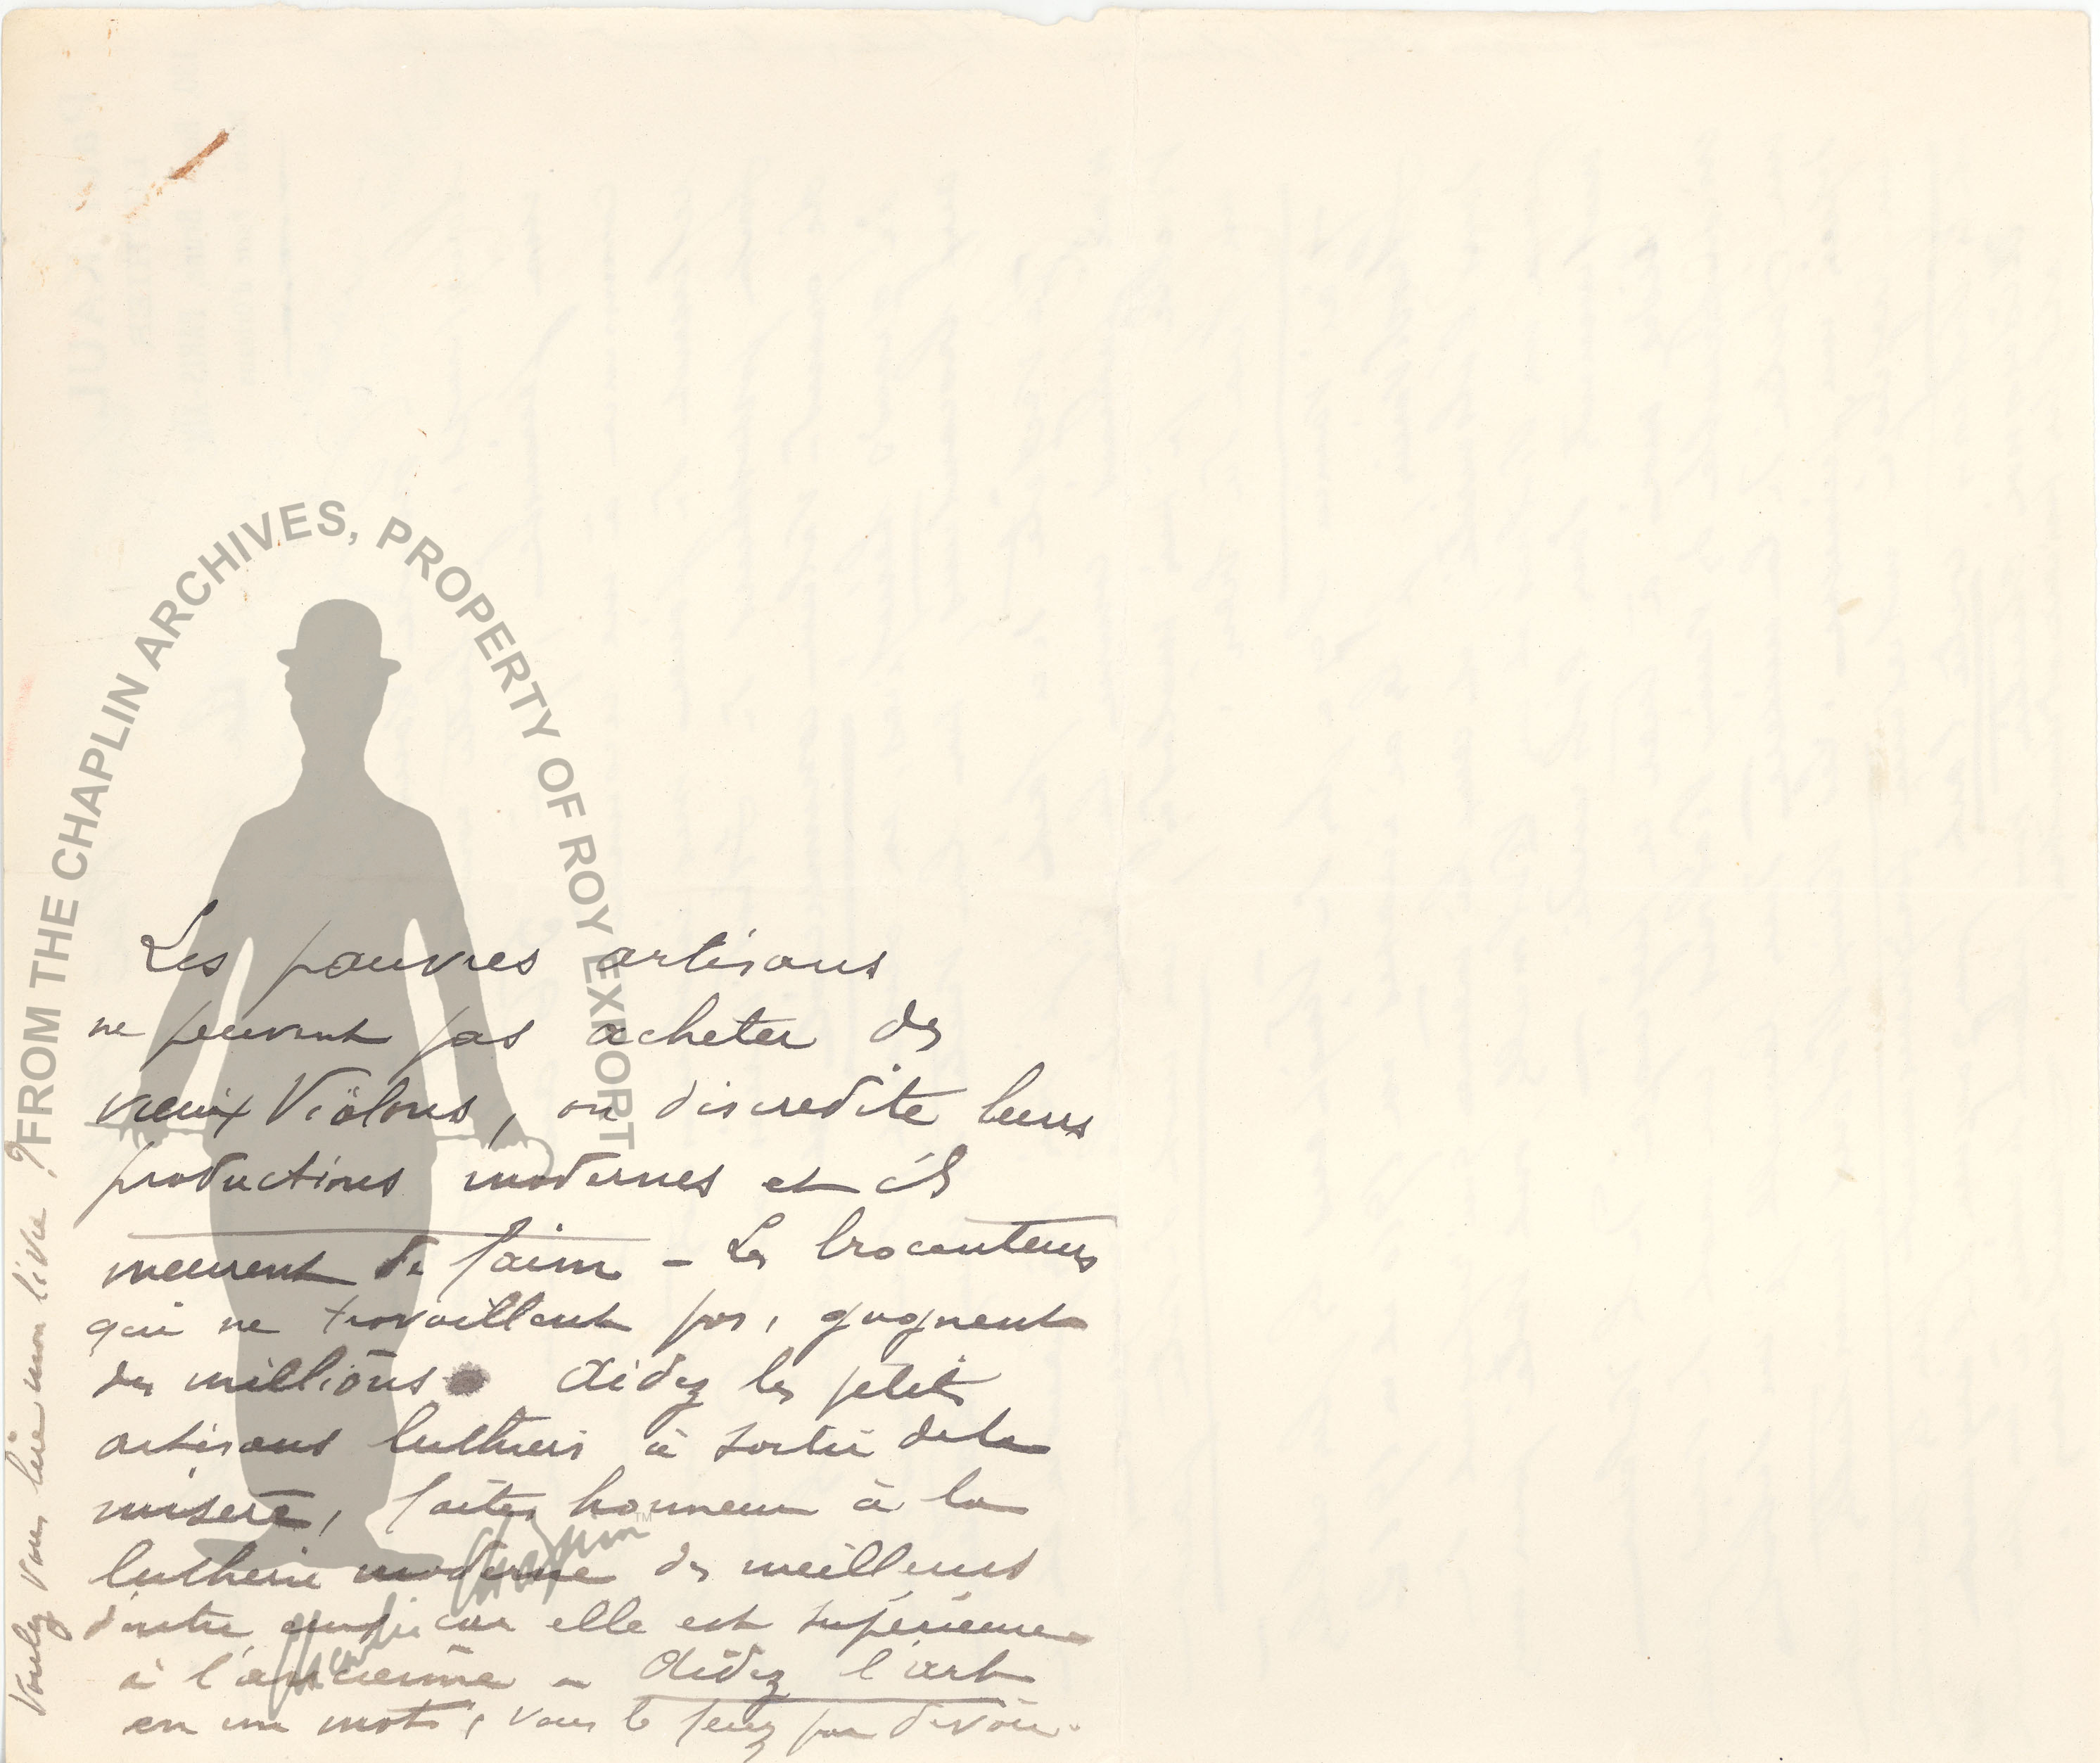 FROM THE CHAPLIN ARCHIVES, PROPERTY OF ROY EXPORT
Les pauvres artisans
ne peuvent pas acheter des
vieux Violons, on discredite leurs
productions modernes et ils
meurent de faim - Les brocanteurs
qui ne travaillent pas, gagnent
des millions. Aidez les petits
artisans luthiers à sortir de la
misère, faites honneur à la
lutherie moderne des meilleurs
d'entre car elle est supérieure
à l'ancienne - Aidez l'art
en un mot, vous le ferez par devoir.
Voulez vous lire mon livre ?
Charlie Chaplin
TM